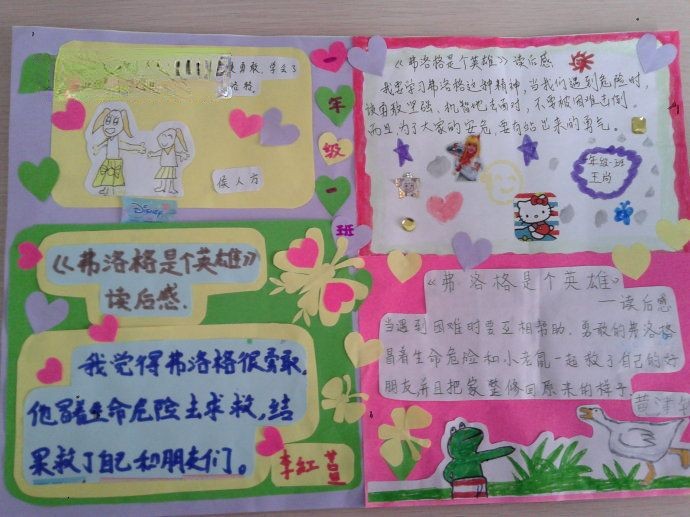 勇敢，学会了
侯人方
Disney
一年级一班
《弗洛格是个英雄》
读后感.
我觉得弗洛格很勇敢,
他冒着生命危险去求救,结
果救了自己和朋友们。
李红萱
《弗洛格是个英雄》读后感
我要学习弗洛格这种精神，当我们遇到危险时，
该勇敢坚强、机智地去面对，不要被困难击倒。
而且为了大家的安危要有站出来的勇气。
一年级一班
王尚
《弗洛格是个英雄》
——读后感
当遇到困难时要互相帮助、勇敢的弗洛格
冒着生命危险和小老鼠一起救了自己的好
朋友,并且把家整修回原来的样子
黄津